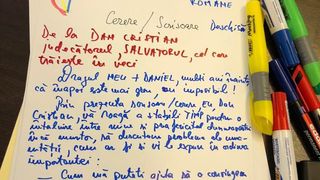 ROMÂNE
Cerere / Scrisoare Deschisă
De la DAN CRISTIAN
judecătorul, SALVATORUL, cel care
trăiește în veci
Dragul MEU + DANIEL, mulți ani înainte
că înapoi este mai greu, ori imposibil!
Prin prezenta scrisoare / cerere Eu, Dan
Cristian, vă roagă a stabili TIMP pentru o
întâlnire între mine și preafericitul dumneavoastră
încă monitor, să discutăm probleme ale ome-
nirii, cum ar fi și vi le expun în ordinea
importanței:
- Cum mă puteți ajuta să o conving